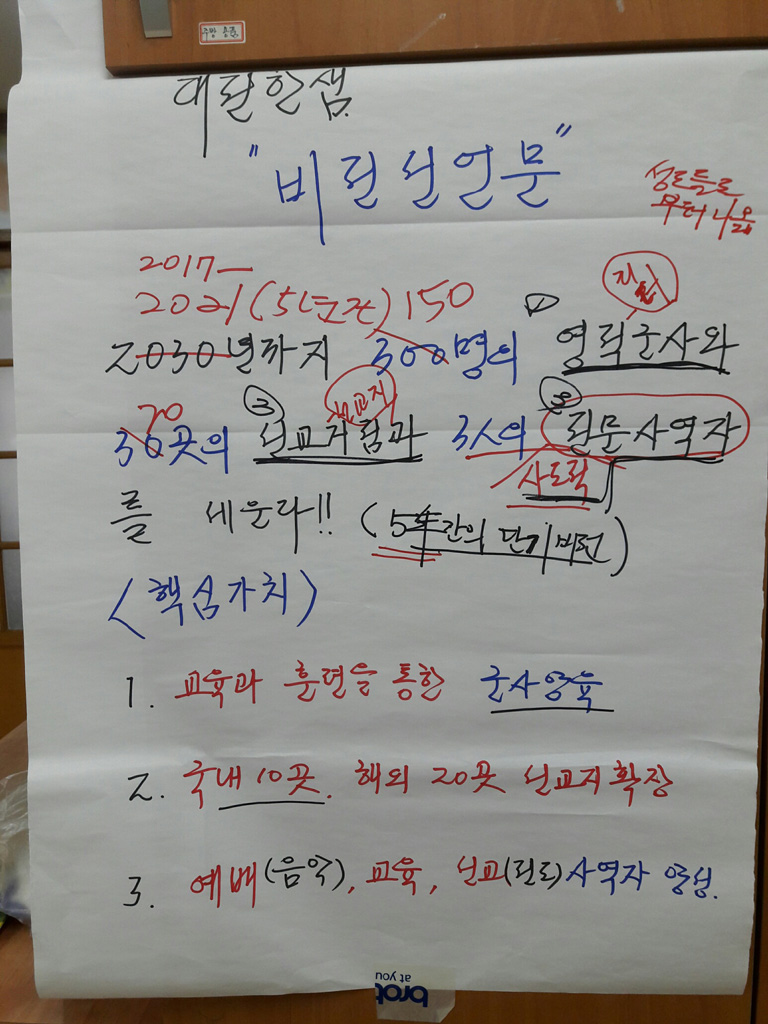 "비전선언문"
성도들로
부터 나옴
2017
2021 (5년간) 150
지회
2030년까지 300명의 ① 영적군사와
70 선교지
30곳의 ② 선교지팀과 3人의 ③ 전문사역자
사도적
를 세운다!! (5年간의 단기비전)
<핵심가치>
1. 교육과 훈련을 통한 군사양육
2. 국내 10곳. 해외 20곳 선교지확장
3. 예배(음악), 교육, 선교(전도)사역자 양성.
brot
at you